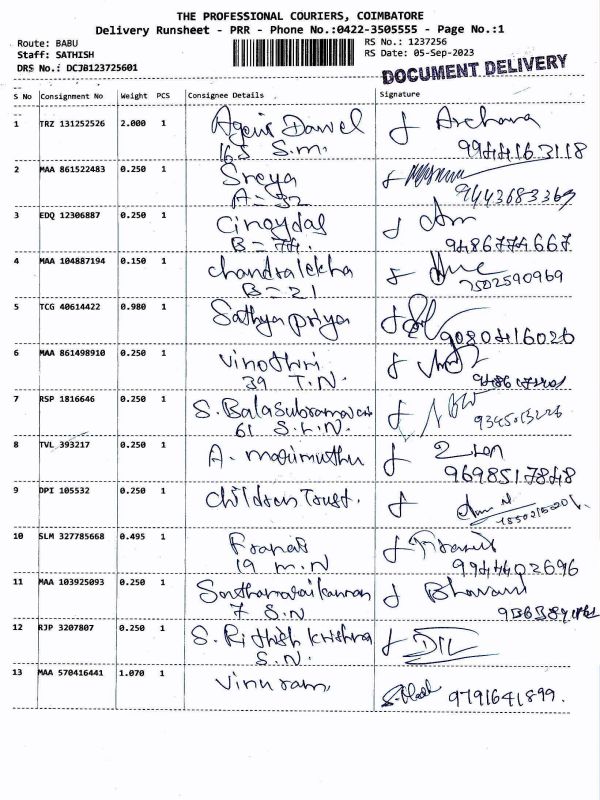 THE PROFESSIONAL COURIERS, COIMBATORE
Delivery Runsheet - PRR - Phone No.:0422-3505555 - Page No.:1
Route: BABU
RS No.: 1237256
Staff: SATHISH
RS Date: 05-Sep-2023
DRS No.: DCJB123725601
DOCUMENT DELIVERY
S No Consignment No Weight PCS Consignee Details Signature
1 TRZ 131252526 2.000 1 Daniel Archana
165 S.M. 9944163118
2 MAA 861522483 0.250 1 Sreya
A = 32 9443683369
3 EDQ 12306887 0.250 1
B = 74. 9486774667
4 MAA 104887194 0.150 1 chandralekha
B = 21 7502590969
5 TCG 40614422 0.980 1 Sathya priya
9080416026
6 MAA 861498910 0.250 1
39 T.N.
7 RSP 1816646 0.250 1 S.
61 S.L.N.
8 TVL 393217 0.250 1 A.
9698517848
9 DPI 105532 0.250 1 Children Trust.
10 SLM 327785668 0.495 1
19 M.N 9944402696
11 MAA 103925093 0.250 1 Bhavani
7 S.N
12 RJP 3207807 0.250 1 S. Rithish Krishna
S.N.
13 MAA 570416441 1.070 1 Vinu ram,
9791641899.